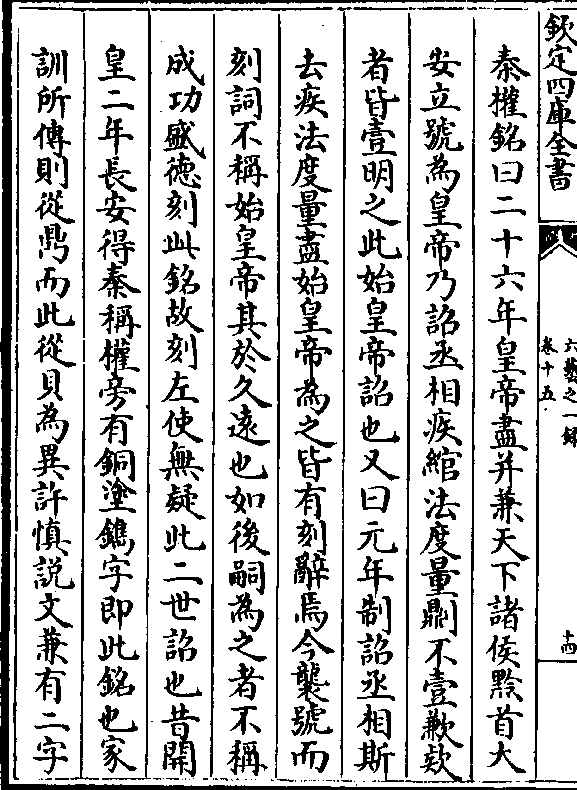 欽定四庫全書
六藝之一錄
卷十五
十四
秦權銘曰二十六年皇帝盡并兼天下諸侯黔首大
安立號為皇帝乃詔丞相疾綰法度量鼎不壹歉疑
者皆壹明之此始皇帝詔也又曰元年制詔丞相斯
去疾法度量盡始皇帝為之皆有刻辭焉今襲號而
刻詞不稱始皇帝其於久遠也如後嗣為之者不稱
成功盛德刻此銘故刻左使無疑此二世詔也昔開
皇二年長安得秦稱權旁有銅塗鐫字即此銘也家
訓所傳則從鼎而此從貝為異許慎説文兼有二字